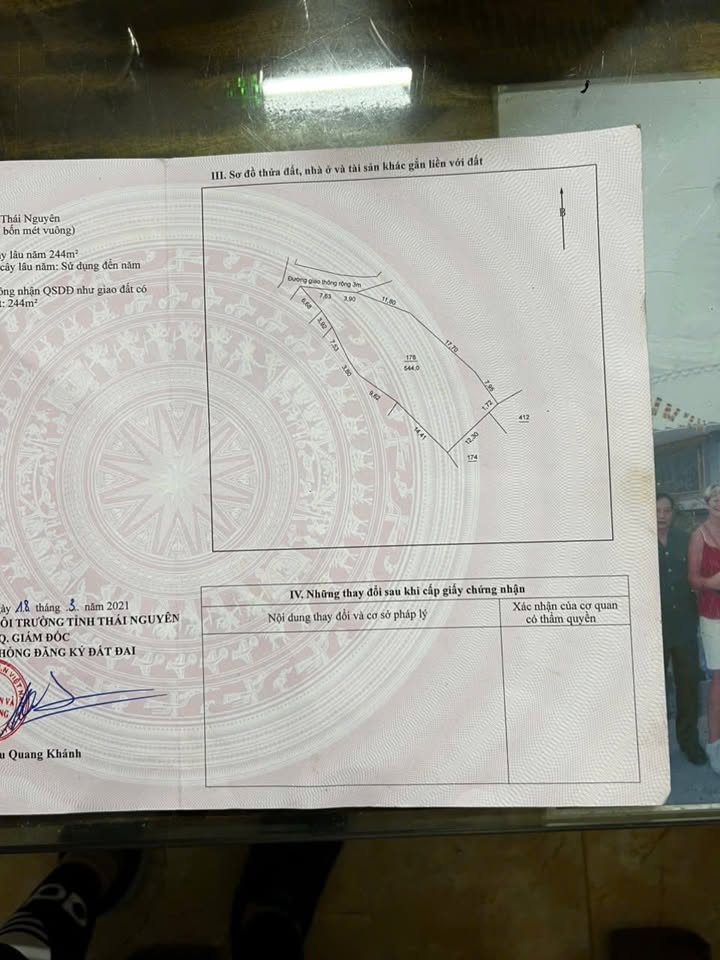 Thái Nguyên
bốn mét vuông)
y lâu năm 244m²
cây lâu năm: Sử dụng đến năm
ông nhận QSDĐ như giao đất có
t: 244m²
ày 18 tháng 3 năm 2021
ÔI TRƯỜNG TỈNH THÁI NGUYÊN
Q. GIÁM ĐỐC
HÒNG ĐĂNG KÝ ĐẤT ĐAI
u Quang Khánh
III. Sơ đồ thửa đất, nhà ở và tài sản khác gắn liền với đất
B
Đường giao thông rộng 3m
7,63 3,90 11,60
6,68
3,92
7,53
3,80
9,62
14,41
17,70
7,95
1,72
12,30
178
544,0
412
174
IV. Những thay đổi sau khi cấp giấy chứng nhận
Nội dung thay đổi và cơ sở pháp lý
Xác nhận của cơ quan
có thẩm quyền